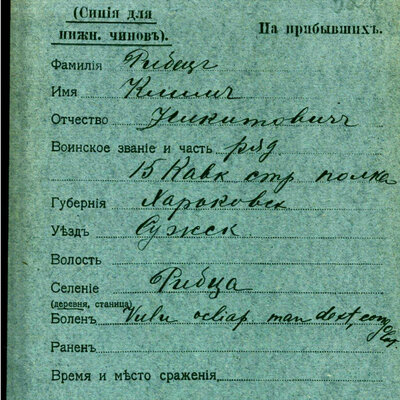 (Синія для
нижн. чиновъ).
На прибывшихъ.
Фамилія Рыбецъ
Имя
Отчество Никитовичъ
Воинское званіе и часть ряд
15 Кавк стр полка
Губернія Харьковск
Уѣздъ Сумск
Волость
Селеніе Рыбца
(деревня, станица)
Боленъ Vuln man dext,
Раненъ
Время и мѣсто сраженія